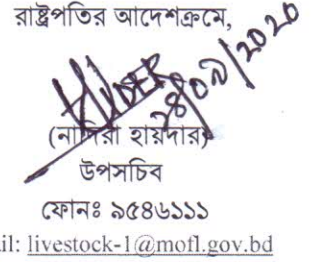 রাষ্ট্রপতির আদেশক্রমে,
২৪/০৯/২০২০
(নাদিরা হায়দার)
উপসচিব
ফোনঃ ৯৫৪৬১১১
il: livestock-1@mofl.gov.bd